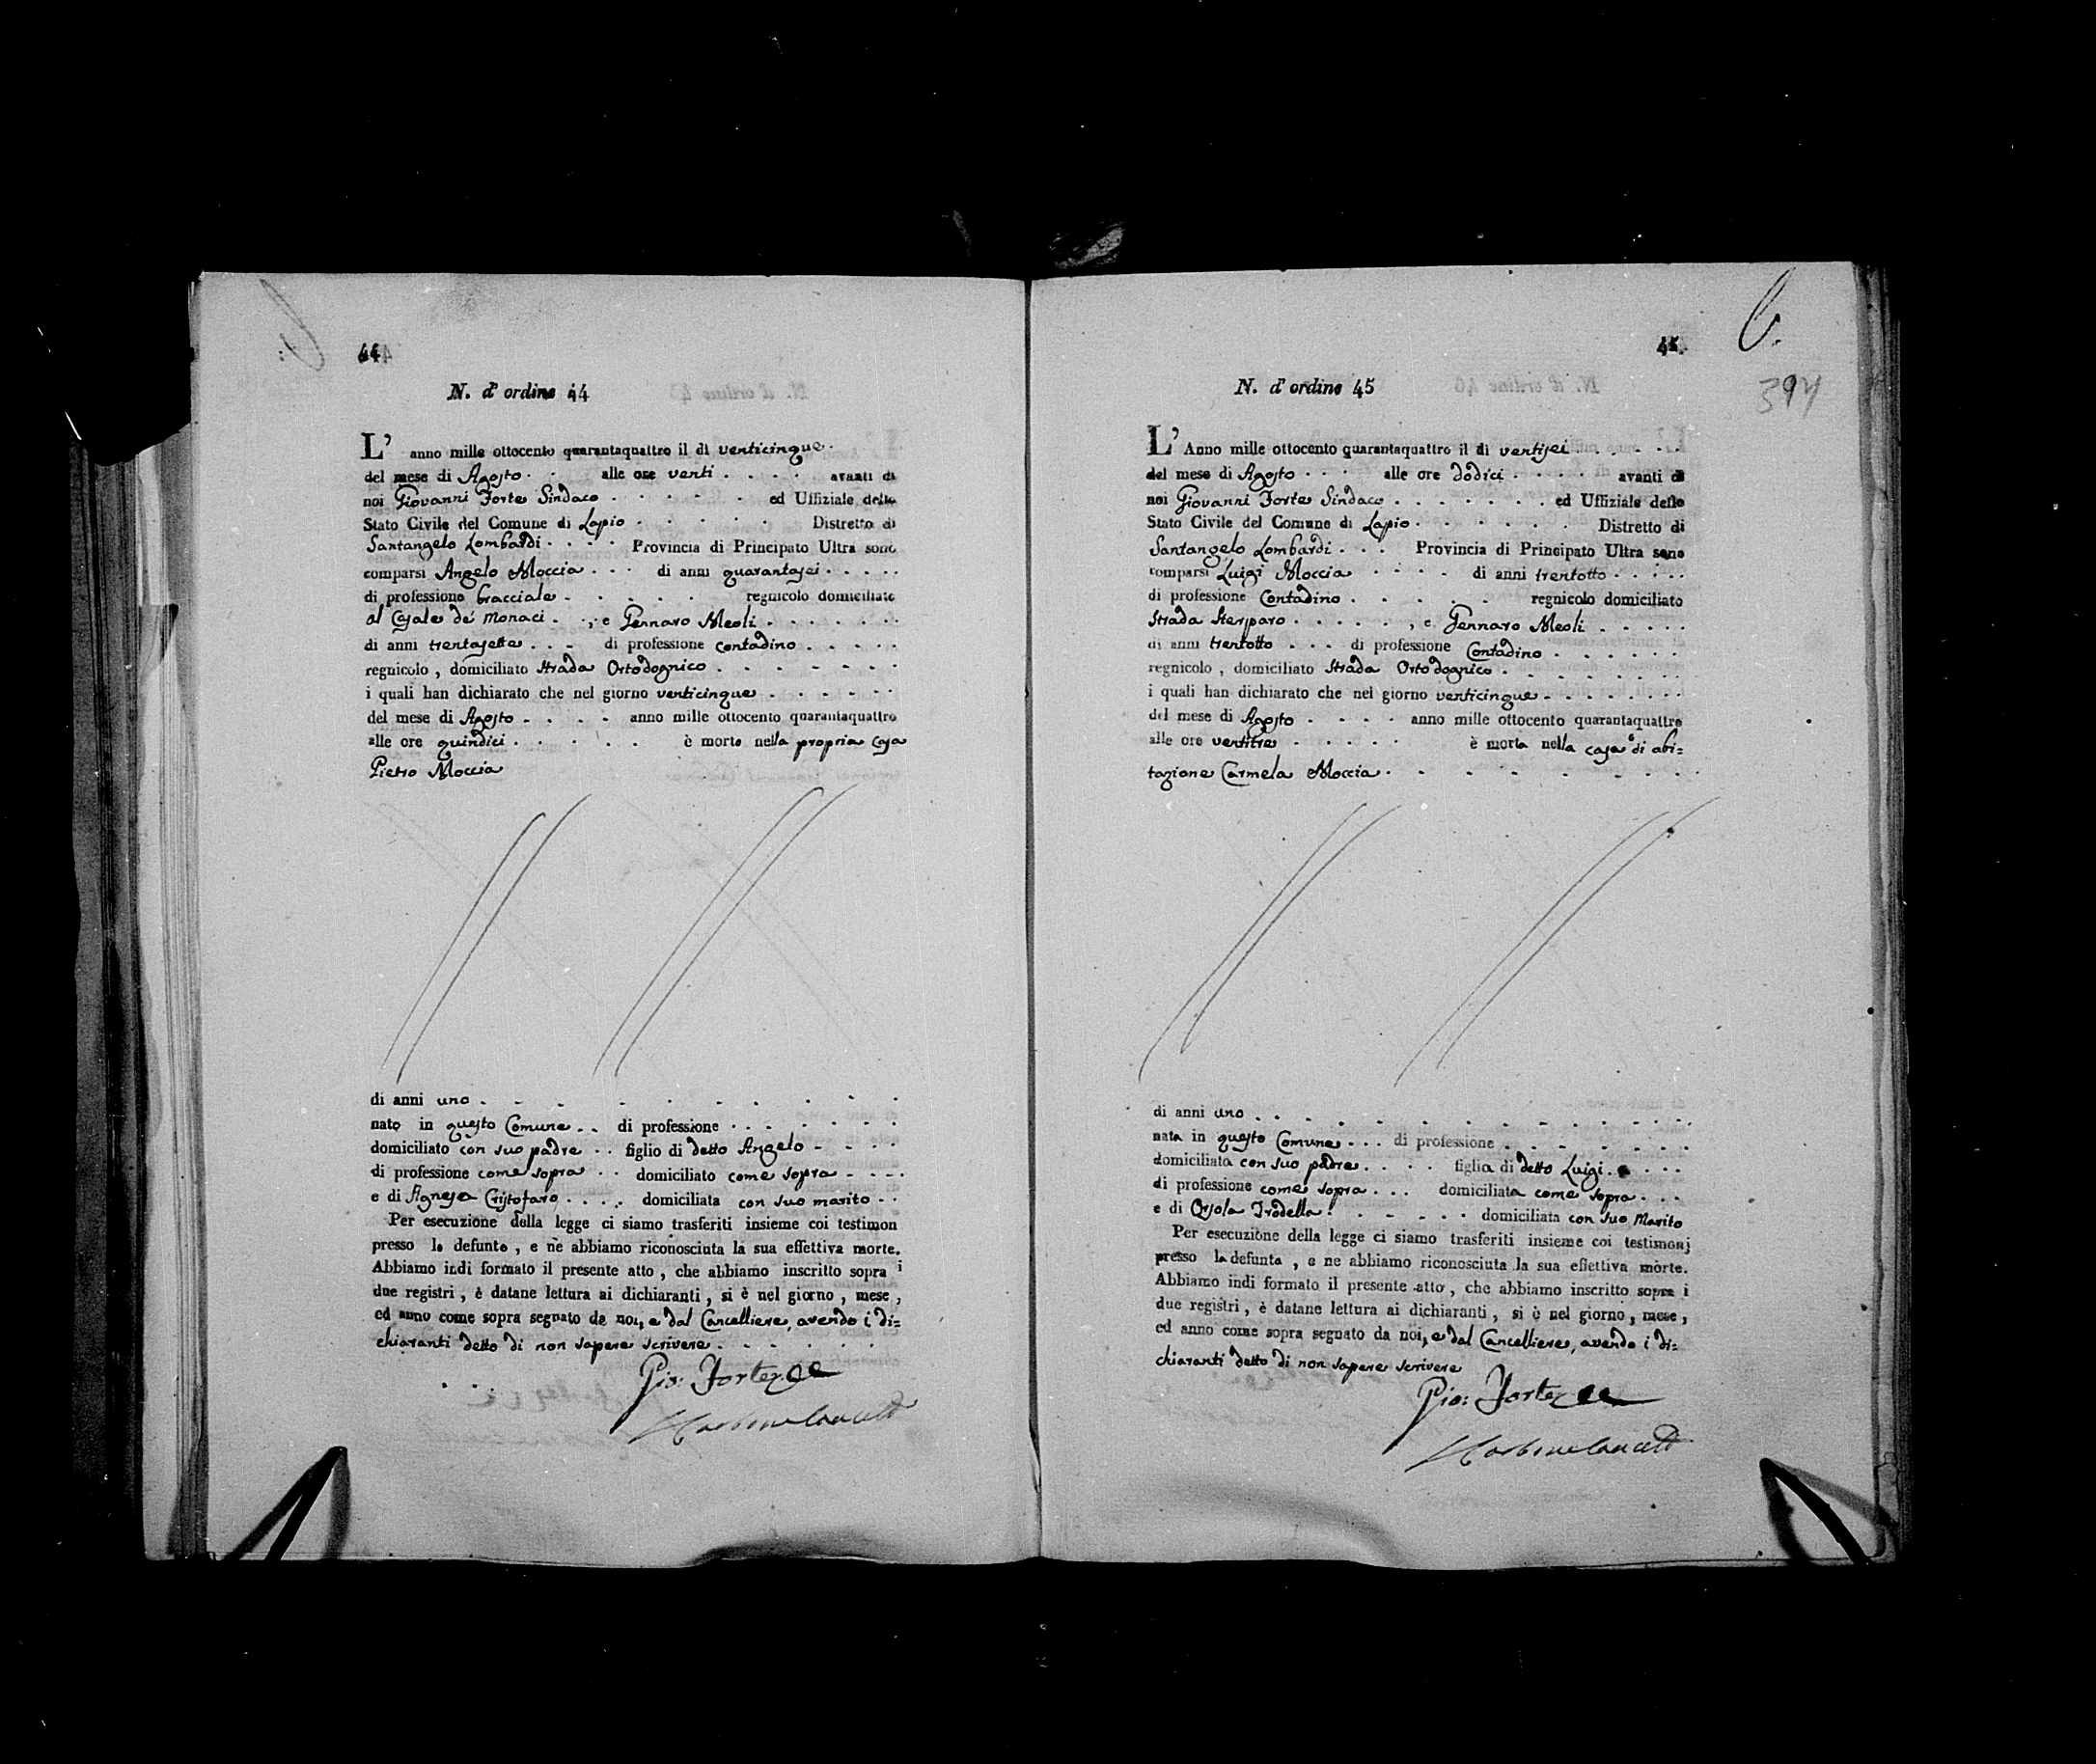 44
N. d' ordine 44
L' anno mille ottocento quarantaquattro il di venticinque
del mese di Agosto alle ore venti avanti di
noi Giovanni Forte Sindaco ed Uffiziale dello
Stato Civile del Comune di Lapio Distretto di
Santangelo Lombardi Provincia di Principato Ultra sono
comparsi Angelo Moccia di anni quarantasei
di professione bracciale regnicolo domiciliato
al Casale de' Monaci , e Gennaro Meoli
di anni trentasette di professione contadino
regnicolo , domiciliato Strada Ortodognico
i quali han dichiarato che nel giorno venticinque
del mese di Agosto anno mille ottocento quarantaquattro
alle ore quindici è morto nella propria casa
Pietro Moccia
di anni uno
nato in questo Comune di professione
domiciliato con suo padre figlio di detto Angelo
di professione come sopra domiciliato come sopra
e di Agnesa Cristofaro domiciliata con suo marito
Per esecuzione della legge ci siamo trasferiti insieme coi testimon
presso lo defunto , e ne abbiamo riconosciuta la sua effettiva morte.
Abbiamo indi formato il presente atto , che abbiamo inscritto sopra i
due registri , è datane lettura ai dichiaranti , si è nel giorno , mese ,
ed anno come sopra segnato da noi, e dal Cancelliere, avendo i di=
chiaranti detto di non sapere scrivere
Gio: Forte
45
394
N. d' ordine 45
L' Anno mille ottocento quarantaquattro il di ventisei
del mese di Agosto alle ore dodici avanti di
noi Giovanni Forte Sindaco ed Uffiziale dello
Stato Civile del Comune di Lapio Distretto di
Santangelo Lombardi Provincia di Principato Ultra sono
comparsi Luigi Moccia di anni trentotto
di professione Contadino regnicolo domiciliato
Strada Sterparo , e Gennaro Meoli
di anni trentotto di professione Contadino
regnicolo , domiciliato Strada Ortodognico
i quali han dichiarato che nel giorno venticinque
del mese di Agosto anno mille ottocento quarantaquattro
alle ore ventitre è morta nella casa di abi=
tazione Carmela Moccia
di anni uno
nata in questo Comune di professione
domiciliata con suo padre figlia di detto Luigi
di professione come sopra domiciliata come sopra
e di Orsola Trodella domiciliata con suo Marito
Per esecuzione della legge ci siamo trasferiti insieme coi testimonj
presso la defunta , e ne abbiamo riconosciuta la sua effettiva morte.
Abbiamo indi formato il presente atto , che abbiamo inscritto sopra i
due registri , è datane lettura ai dichiaranti , si è nel giorno , mese ,
ed anno come sopra segnato da noi, e dal Cancelliere, avendo i di=
chiaranti detto di non sapere scrivere
Gio: Forte